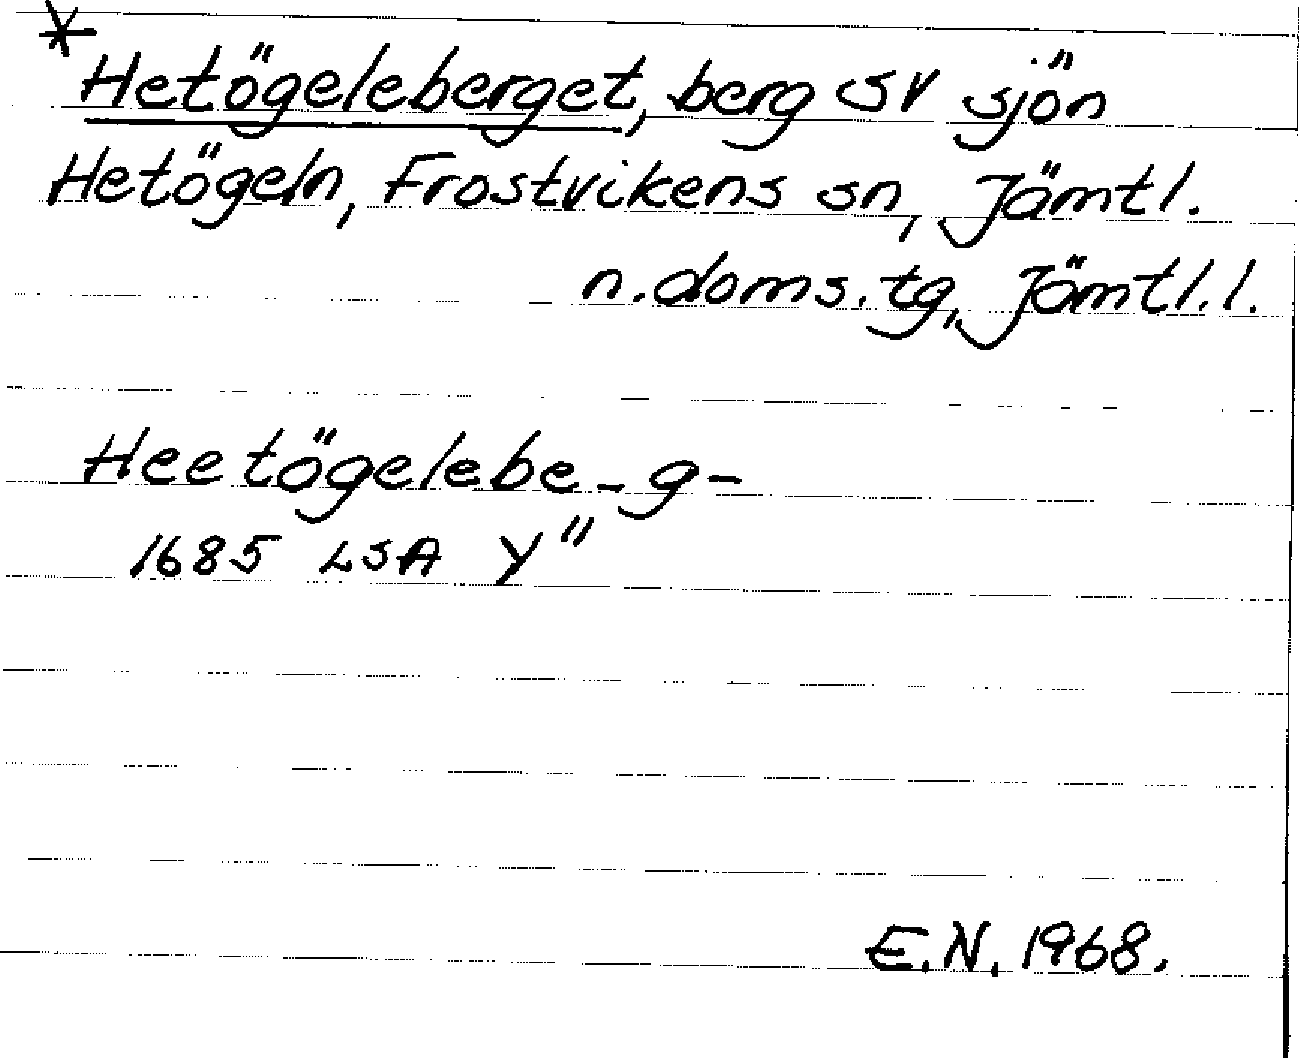 * Hetögeleberget, berg SV sjön
Hetögeln, Frostvikens sn, Jämtl.
n. doms. tg, Jämtl. l.
Heetögelebe-g-
1685 LSA Y"
E.N. 1968.